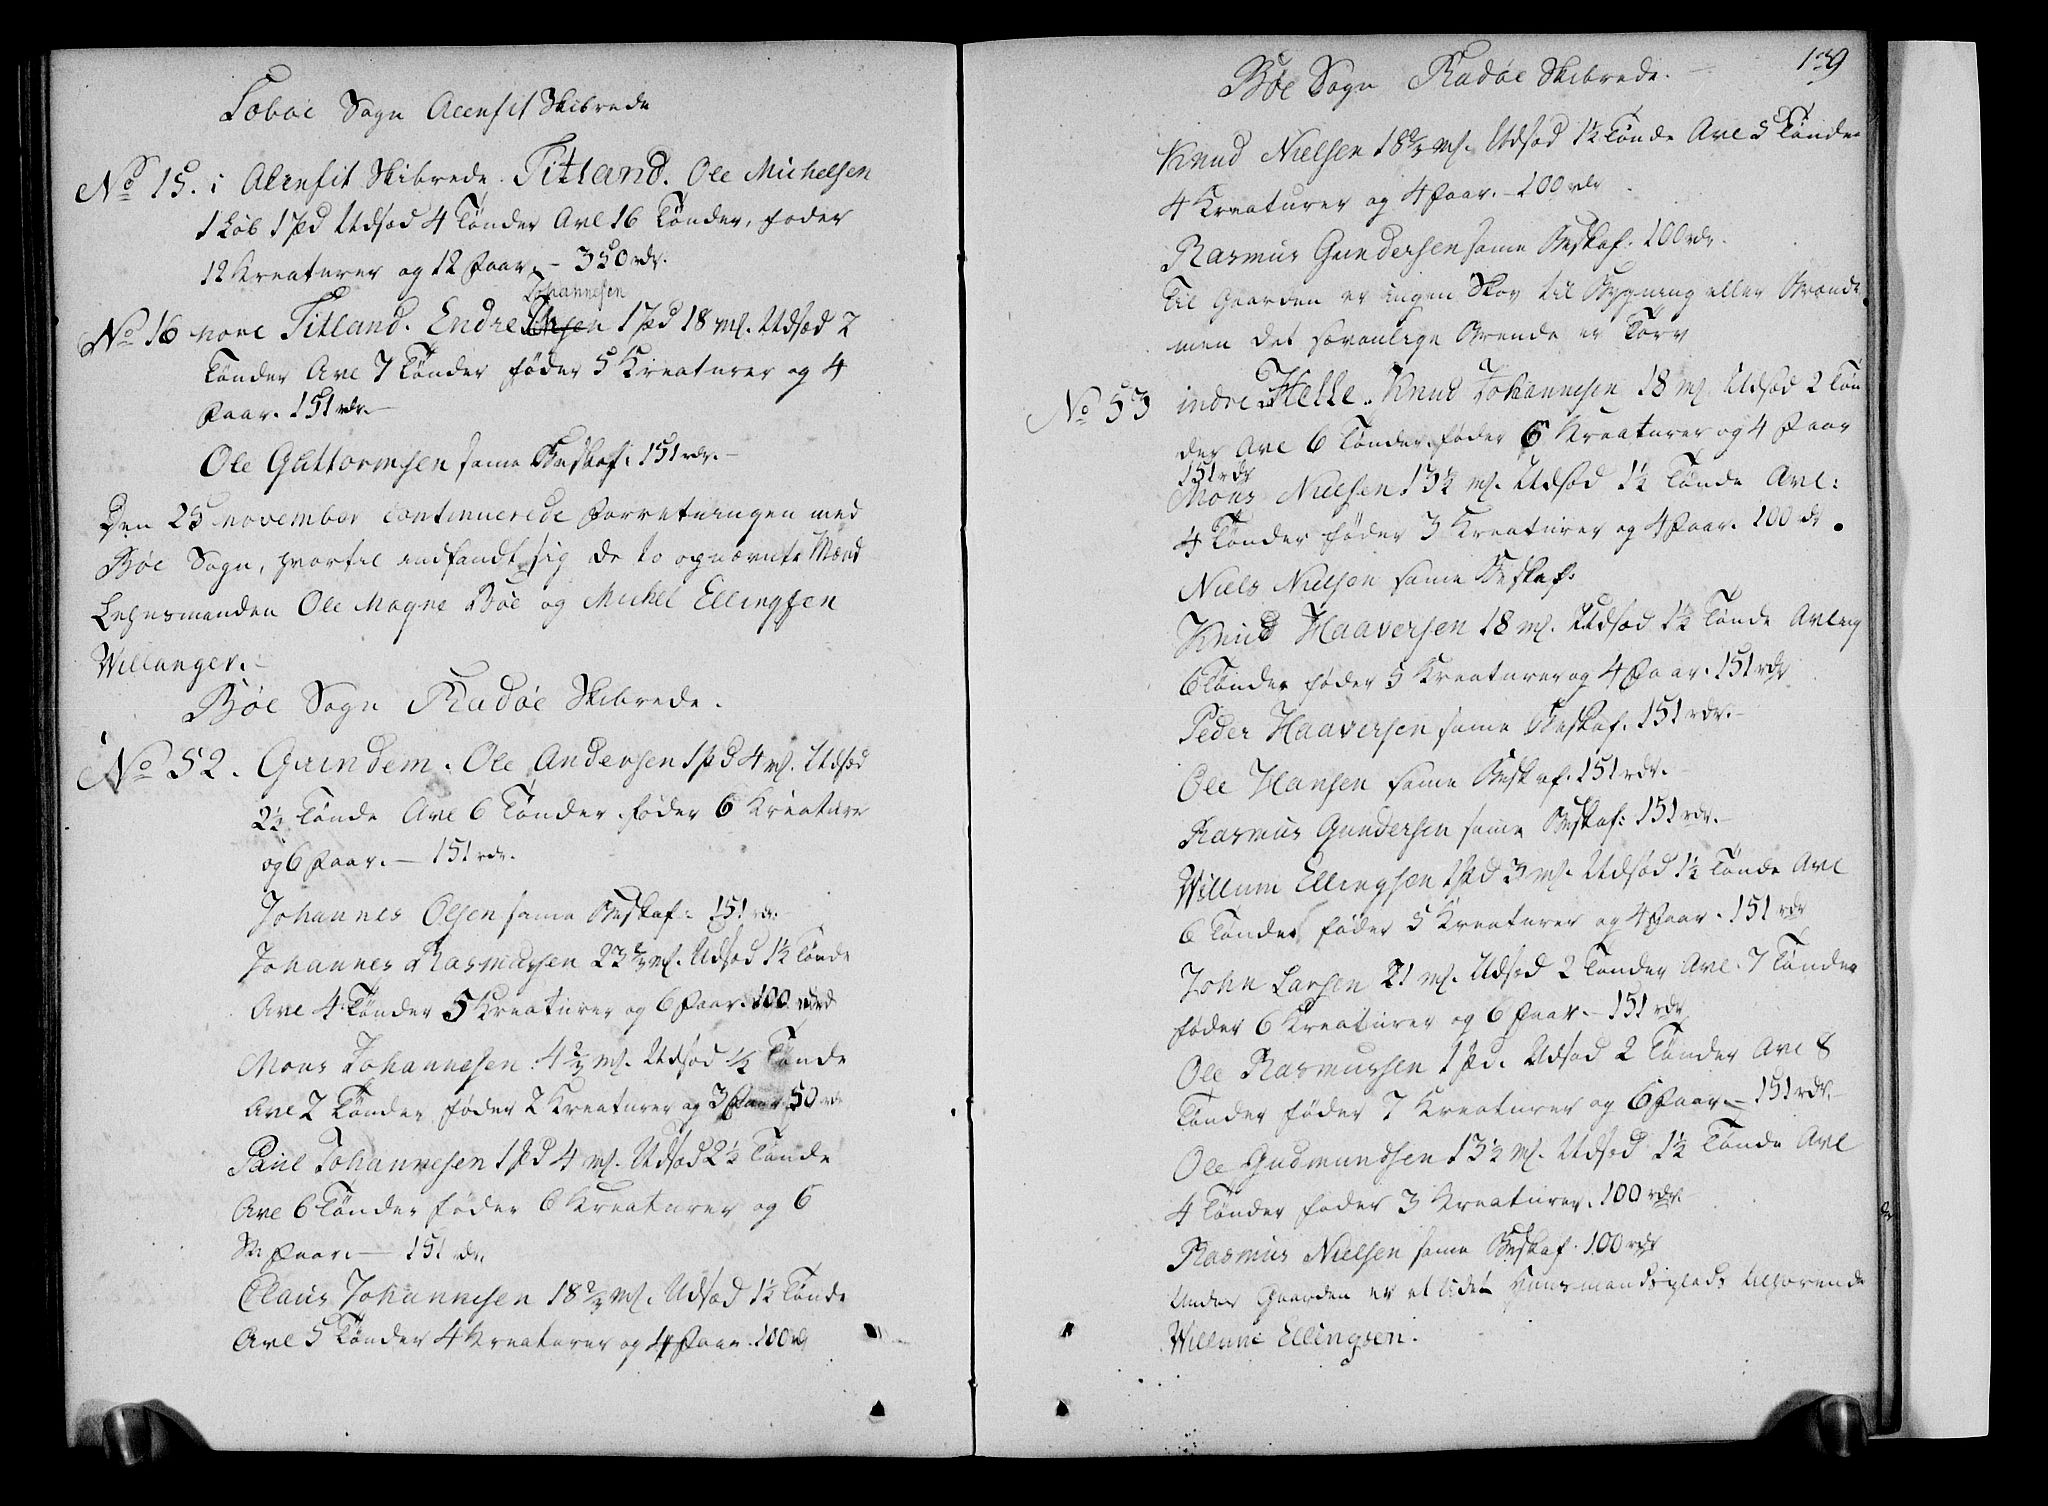 Soboe Sogn Alenfit Skibrede
No 15. i Alenfit Skibrede. Titland. Ole Michelsen
1 Løb 1 pd Udsød 4 Tønder Avl 16 Tønder, foder
12 Kreaturer og 12 Faar. – 350 rdr.
Johannesen
No 16 nore Titland. Endre 1 pd 18 mk. Udsød 2
Tønder Avl 7 Tønder føder 5 Kreaturer og 4
Faar. 151 rdr. –
Ole Guttormsen same Beskaf: 151 rdr. –
Den 25 november continuerede Forretningen med
Bøe Sogn, hvortil indfandt sig de to opnævnte Mænd
Lehnsmanden Ole Mogns Bøe og Mickel Ellingsen
Willanger. –
Bøe Sogn Radøe Skibrede.
No 52. Grindem. Ole Andersen 1 pd 4 mk. Udsød
2½ Tønde Avl 6 Tønder føder 6 Kreature
og 6 Faar. – 151 rdr.
Johannes Olsen same Beskaf: 151 rdr.
Johannes Rasmussen 23 2/3 mk. Udsød 1½ Tønde
Avl 4 Tønder 5 Kreaturer og 6 Faar. 100 rdr
Mons Johannesen 4 2/3 mk. Udsød ½ Tønde
Avl 2 Tønder føder 2 Kreaturer og 3 Faar 50 rdr
Paul Johannesen 1 pd 4 mk. Udsød 2½ Tønde
Avl 6 Tønder føder 6 Kreaturer og 6
Faar. – 151 rdr
Claus Johannesen 18 2/3 mk. Udsød 1½ Tønde
Avl 5 Tønder 4 Kreaturer og 4 Faar. 100 rdr
139
Bøe Sogn Radøe Skibrede. –
Knud Nielsen 18 2/3 mk. Udsød 1½ Tønde Avl 5 Tønder
4 Kreaturer og 4 Faar. – 100 rdr
Rasmus Gundersen same Beskaf: 100 rdr.
Til Gaarden er ingen Skov til Bygning eller Brænde
men det sævanlige Brende er Torv
No 53 indre Helle. Knud Johannesen 18 mk Udsød 2 Tøn
der Avl 6 Tønder føder 6 Kreaturer og 4 Faar
151 rdr
Mons Nielsen 13½ mk. Udsød 1½ Tønde Avl:
4 Tønder føder 3 Kreaturer og 4 Faar. 100 rdr.
Niels Nielsen same Beskaf:
Knud Haaversen 18 mk. Udsød 1½ Tønde Avling
6 Tønder føder 5 Kreaturer og 4 Faar. 151 rdr
Peder Haaversen same Beskaf. 151 rdr. –
Ole Hansen same Beskaf. 151 rdr. –
Rasmus Gundersen same Beskaf: 151 rdr. –
Willum Ellingsen 1 pd 3 mk. Udsød 1½ Tønde Avl
6 Tønder føder 5 Kreaturer og 4 Faar. 151 rdr
John Larsen 21 mk. Udsød 2 Tønder Avl. 7 Tønder
føder 6 Kreaturer og 6 Faar. – 151 rdr
Ole Rasmussen 1 pd. Udsød 2 Tønder Avl 8
Tønder føder 7 Kreaturer og 6 Faar. – 151 rdr. –
Ole Gudmundsen 13½ mk. Udsød 1½ Tønde Avl
4 Tønder føder 3 Kreaturer. 100 rdr.
Rasmus Nielsen same Beskaf. 100 rdr
Under Gaarden er et lidet Huusmandsplads tilhørende
Willum Ellingsen.